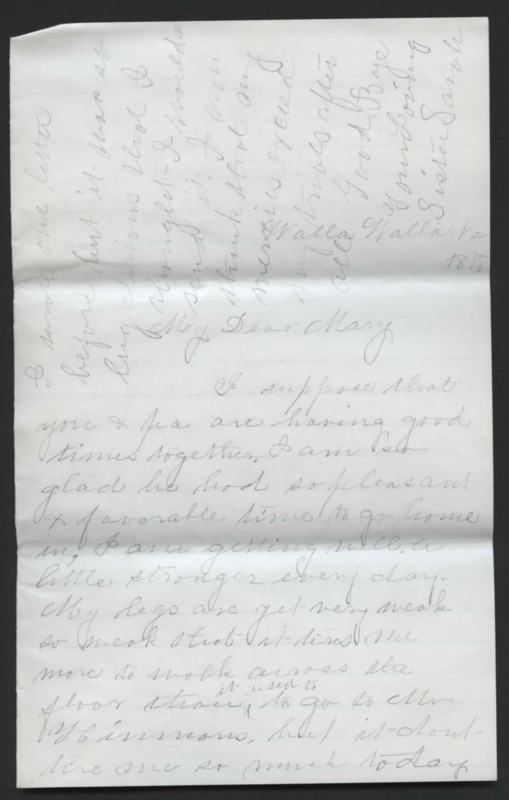 Walla Walla Nov
18
My Dear Mary
I suppose that
you & pa are having good
times together. I am so
glad he had so pleasant
& favorable time to go home
in. I am getting well. a
little stronger every day.
My legs are yet very weak
so weak that it tires me
more to walk across the
floor than it used to, to go to Mr
but it dont
tire me so much today
I wrote one letter
before but it was so
lugubrious that I
thought I wouldn
send it. I
think that my
mercies exceed
my trials after
all Good Bye
Your Loving
Sister Sarah